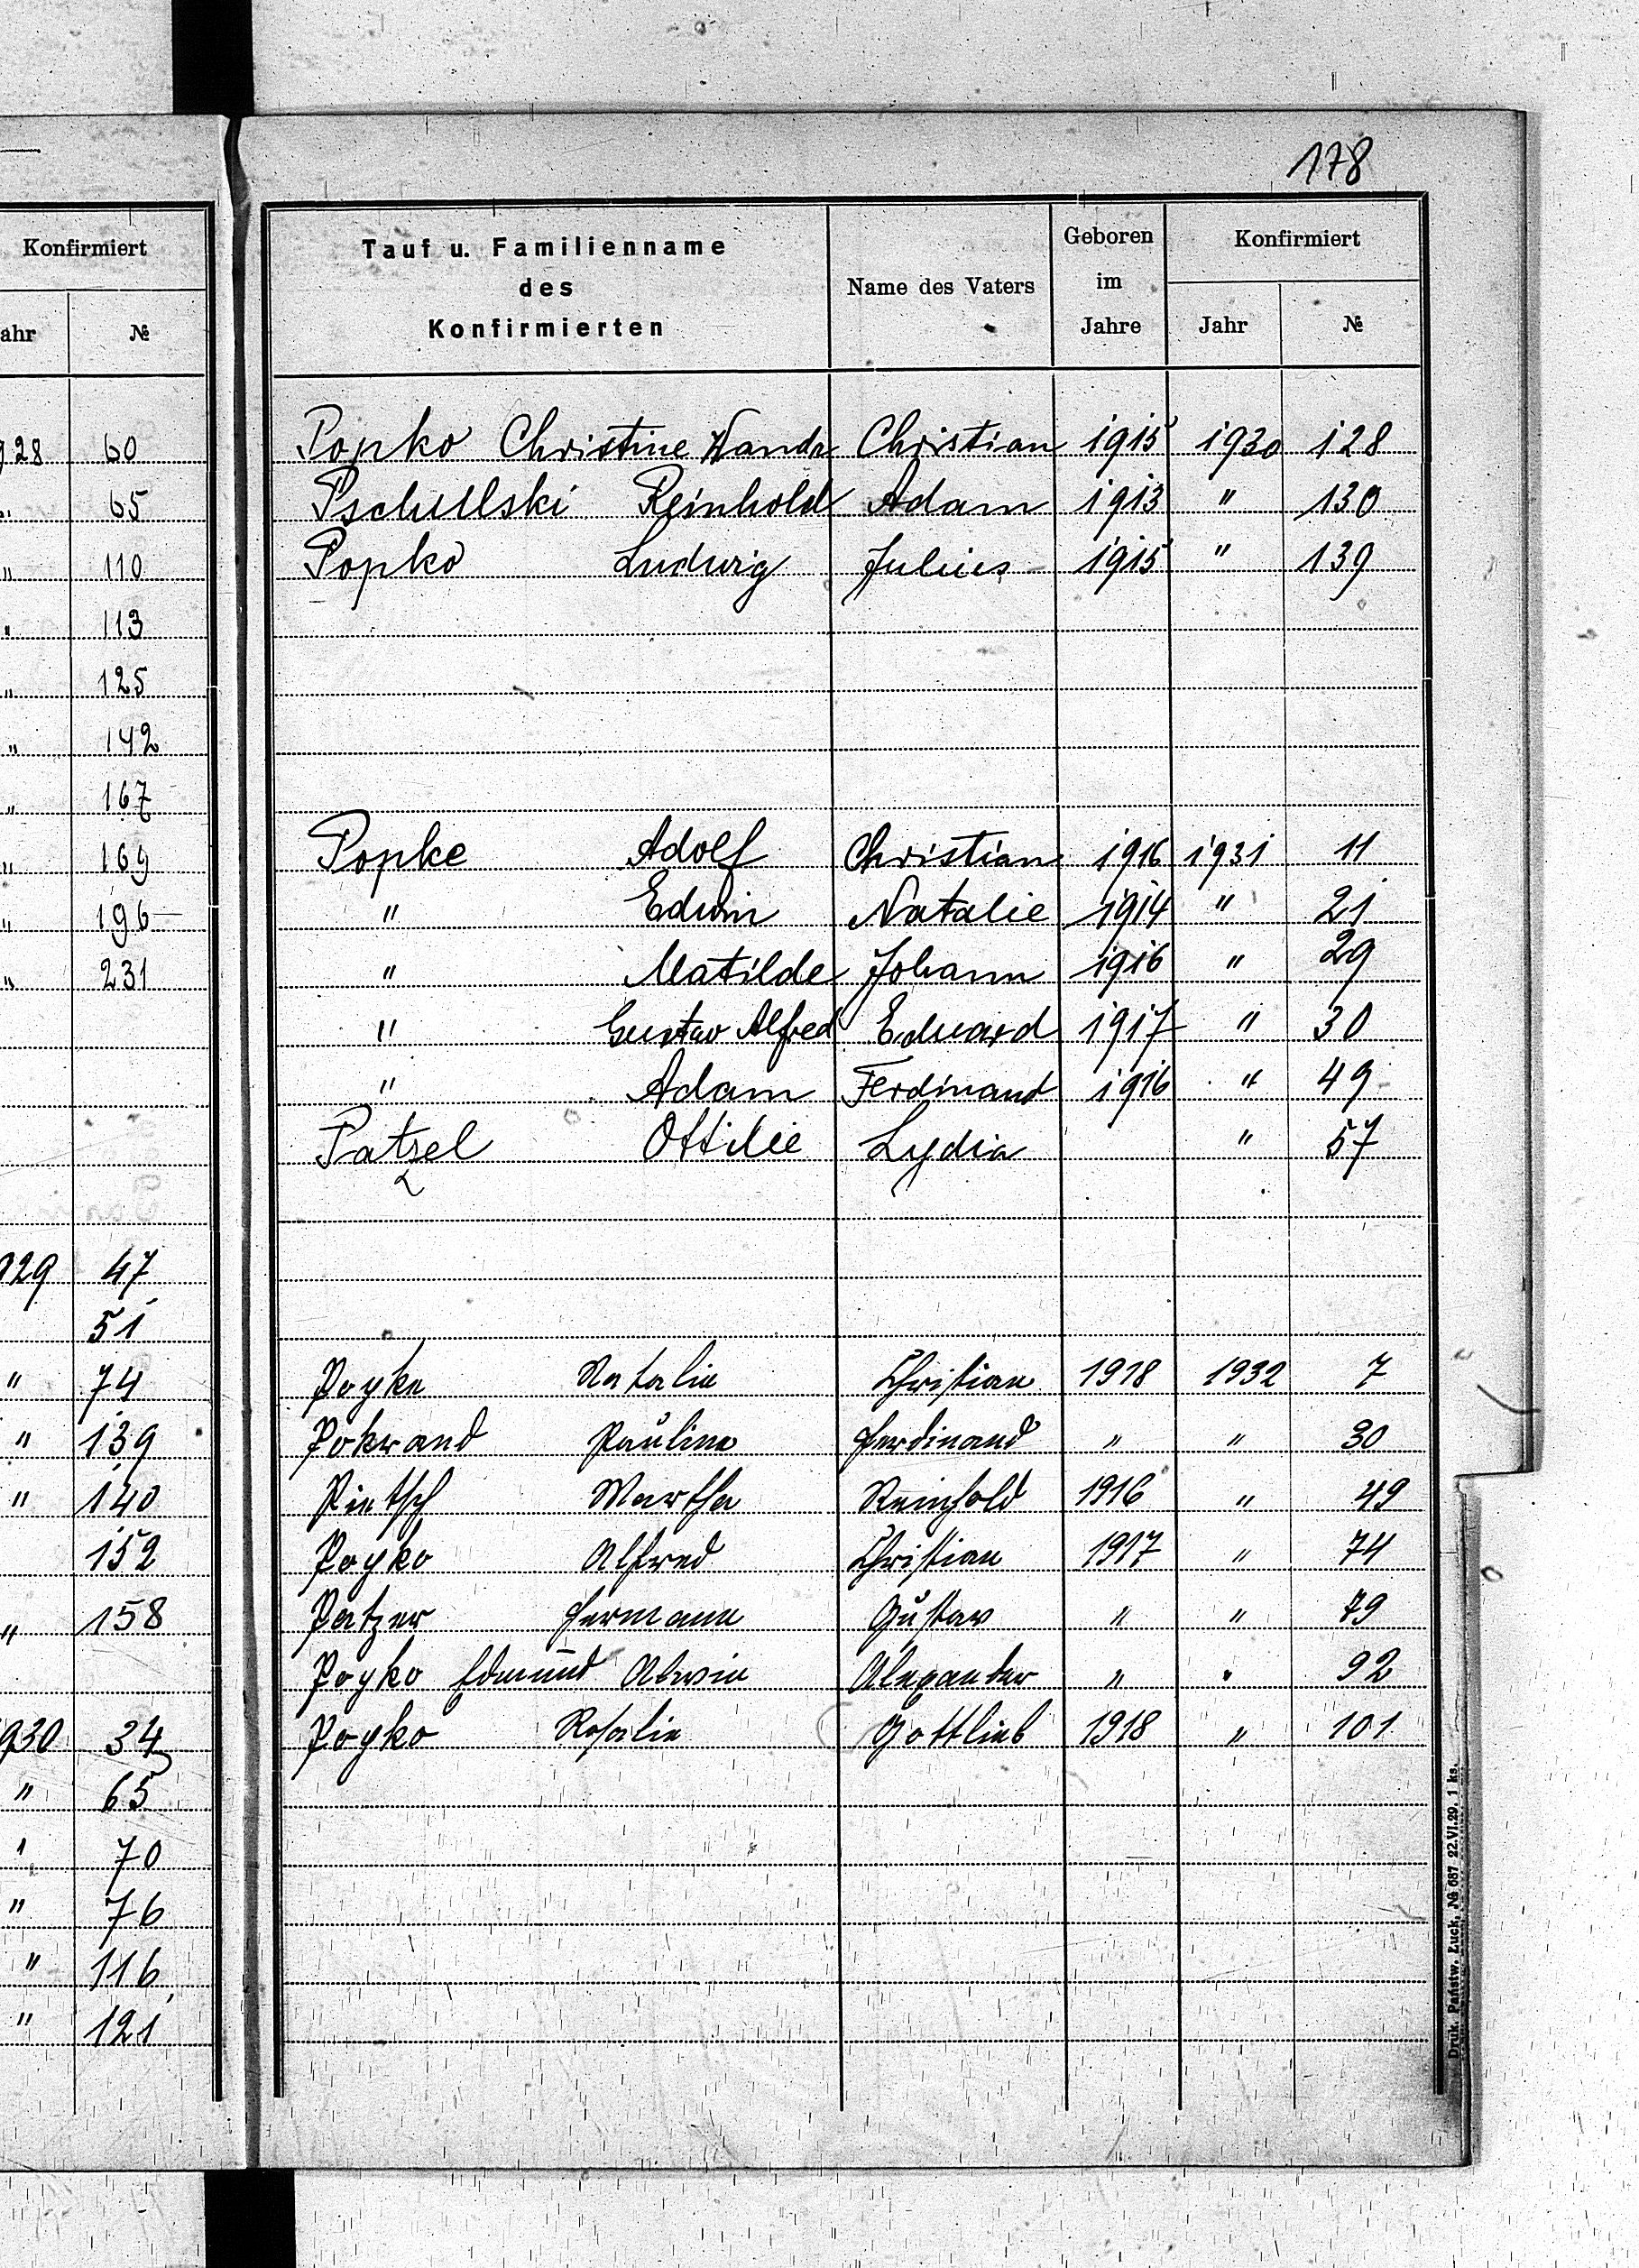 178
Konfirmiert
ahr №
928 60
" 65
" 110
" 113
" 125
" 142
" 167
" 169
" 196
" 231
929 47
51
" 74
" 139
" 140
152
" 158
1930 34
" 65
" 70
" 76
" 116
" 121
Tauf u. Familienname des Konfirmierten
Name des Vaters
Geboren im Jahre
Konfirmiert
Jahr №
Popko Christine Wanda Christian 1915 1930 128
Pschullski Reinhold Adam 1913 " 130
Popko Ludwig Julius 1915 " 139
Popke Adolf Christian 1916 1931 11
" Edwin Natalie 1914 " 21
" Matilde Johann 1916 " 29
" Gustav Alfred Eduard 1917 " 30
" Adam Ferdinand 1916 " 49
Patzel Ottilie Lydia " 57
Popke Natalie Christian 1918 1932 7
Pokrand Pauline Ferdinand " " 30
Pietsch Martha Reinhold 1916 " 49
Popko Alfred Christian 1917 " 74
Patzer Hermann Gustav " " 79
Popko Edmund Alwin Alexander " " 92
Popko Rosalie Gottlieb 1918 " 101
Druk. Państw. Łuck, № 687 22.VI.29. 1 ks.